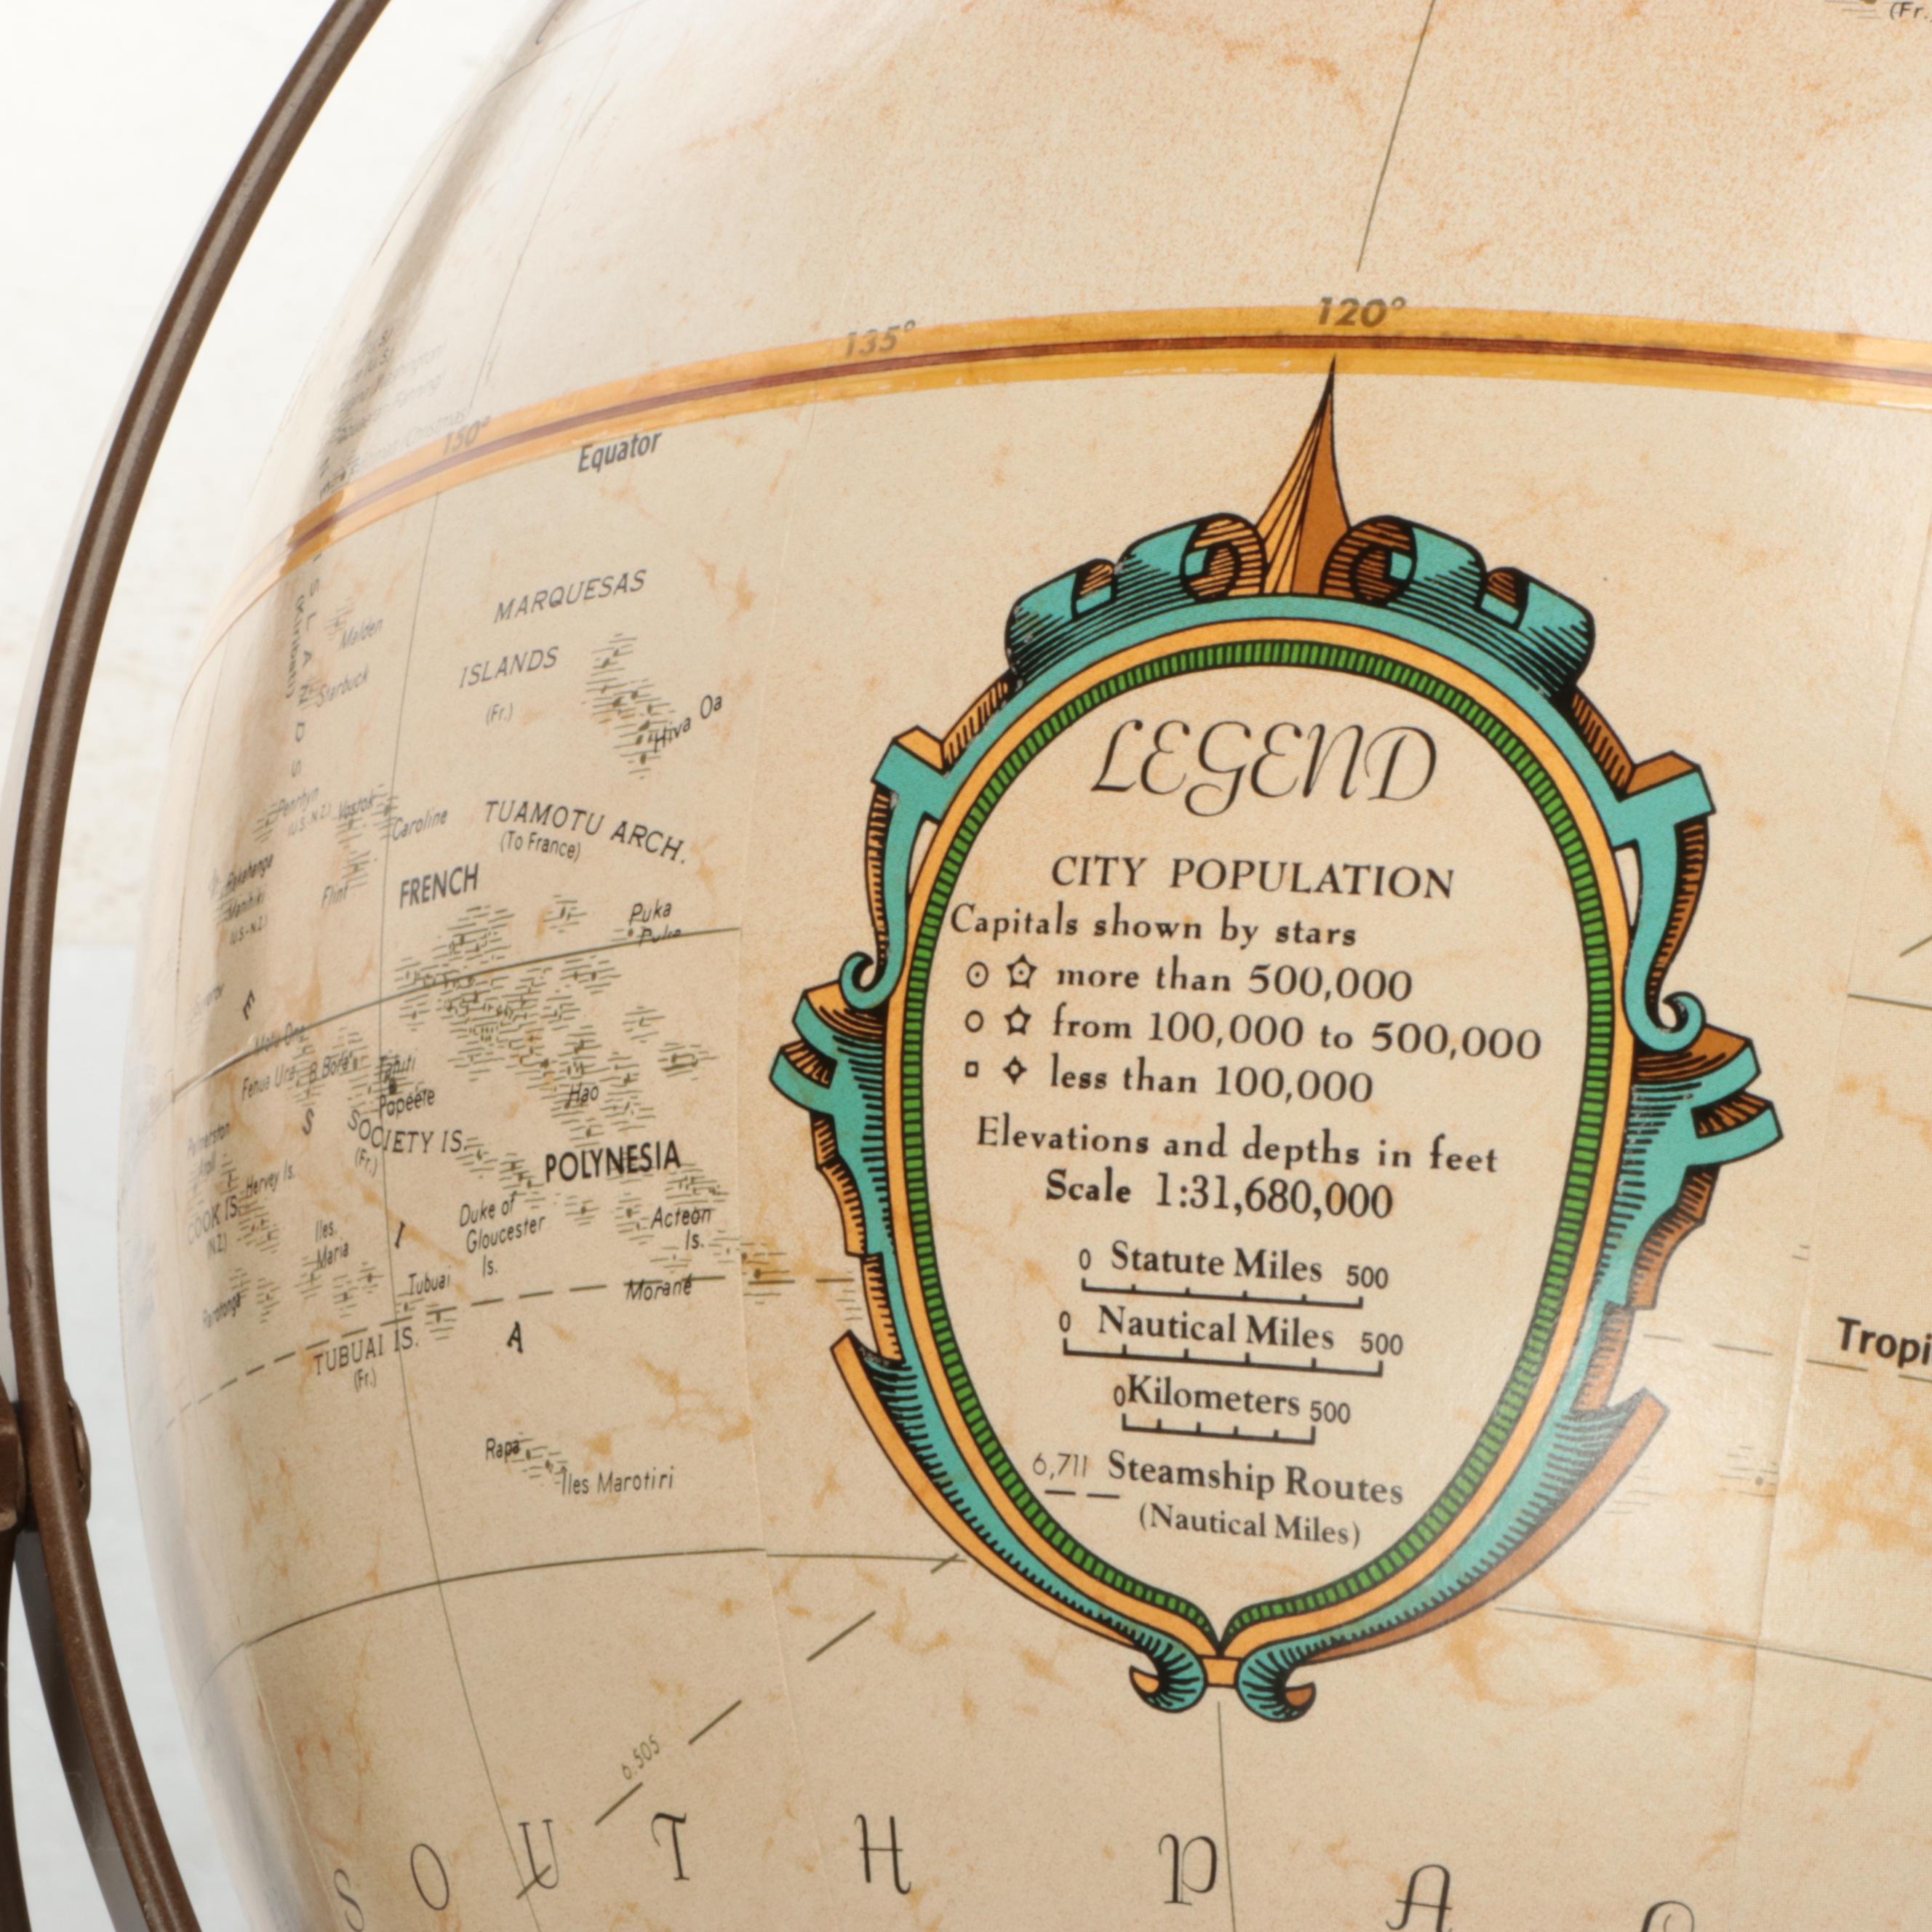 (Fr.
120°
135°
150°
Equator
MARQUESAS
ISLANDS
(Fr.)
Hiva Oa
Malden
Starbuck
ISLANDS
(Kiribati)
Penrhyn
(U.S.-N.Z.)
Vostok
Caroline
TUAMOTU ARCH.
(To France)
FRENCH
Flint
Manihiki
(U.S-N.Z.)
Puka
Puka
E
Motu One
Fenua Ura
Bora
Tahiti
Papeete
Hao
S
SOCIETY IS.
(Fr.)
POLYNESIA
Palmerston
Hervey Is.
COOK IS.
(N.Z.)
Iles
Maria
I
Duke of
Gloucester
Is.
Acteon
Is.
Tubuai
Morane
Rarotonga
TUBUAI IS.
(Fr.)
A
Rapa
Iles Marotiri
LEGEND
CITY POPULATION
Capitals shown by stars
more than 500,000
from 100,000 to 500,000
less than 100,000
Elevations and depths in feet
Scale 1:31,680,000
0 Statute Miles 500
0 Nautical Miles 500
0 Kilometers 500
6,711 Steamship Routes
(Nautical Miles)
Tropi
6,505
SOUTH PAC